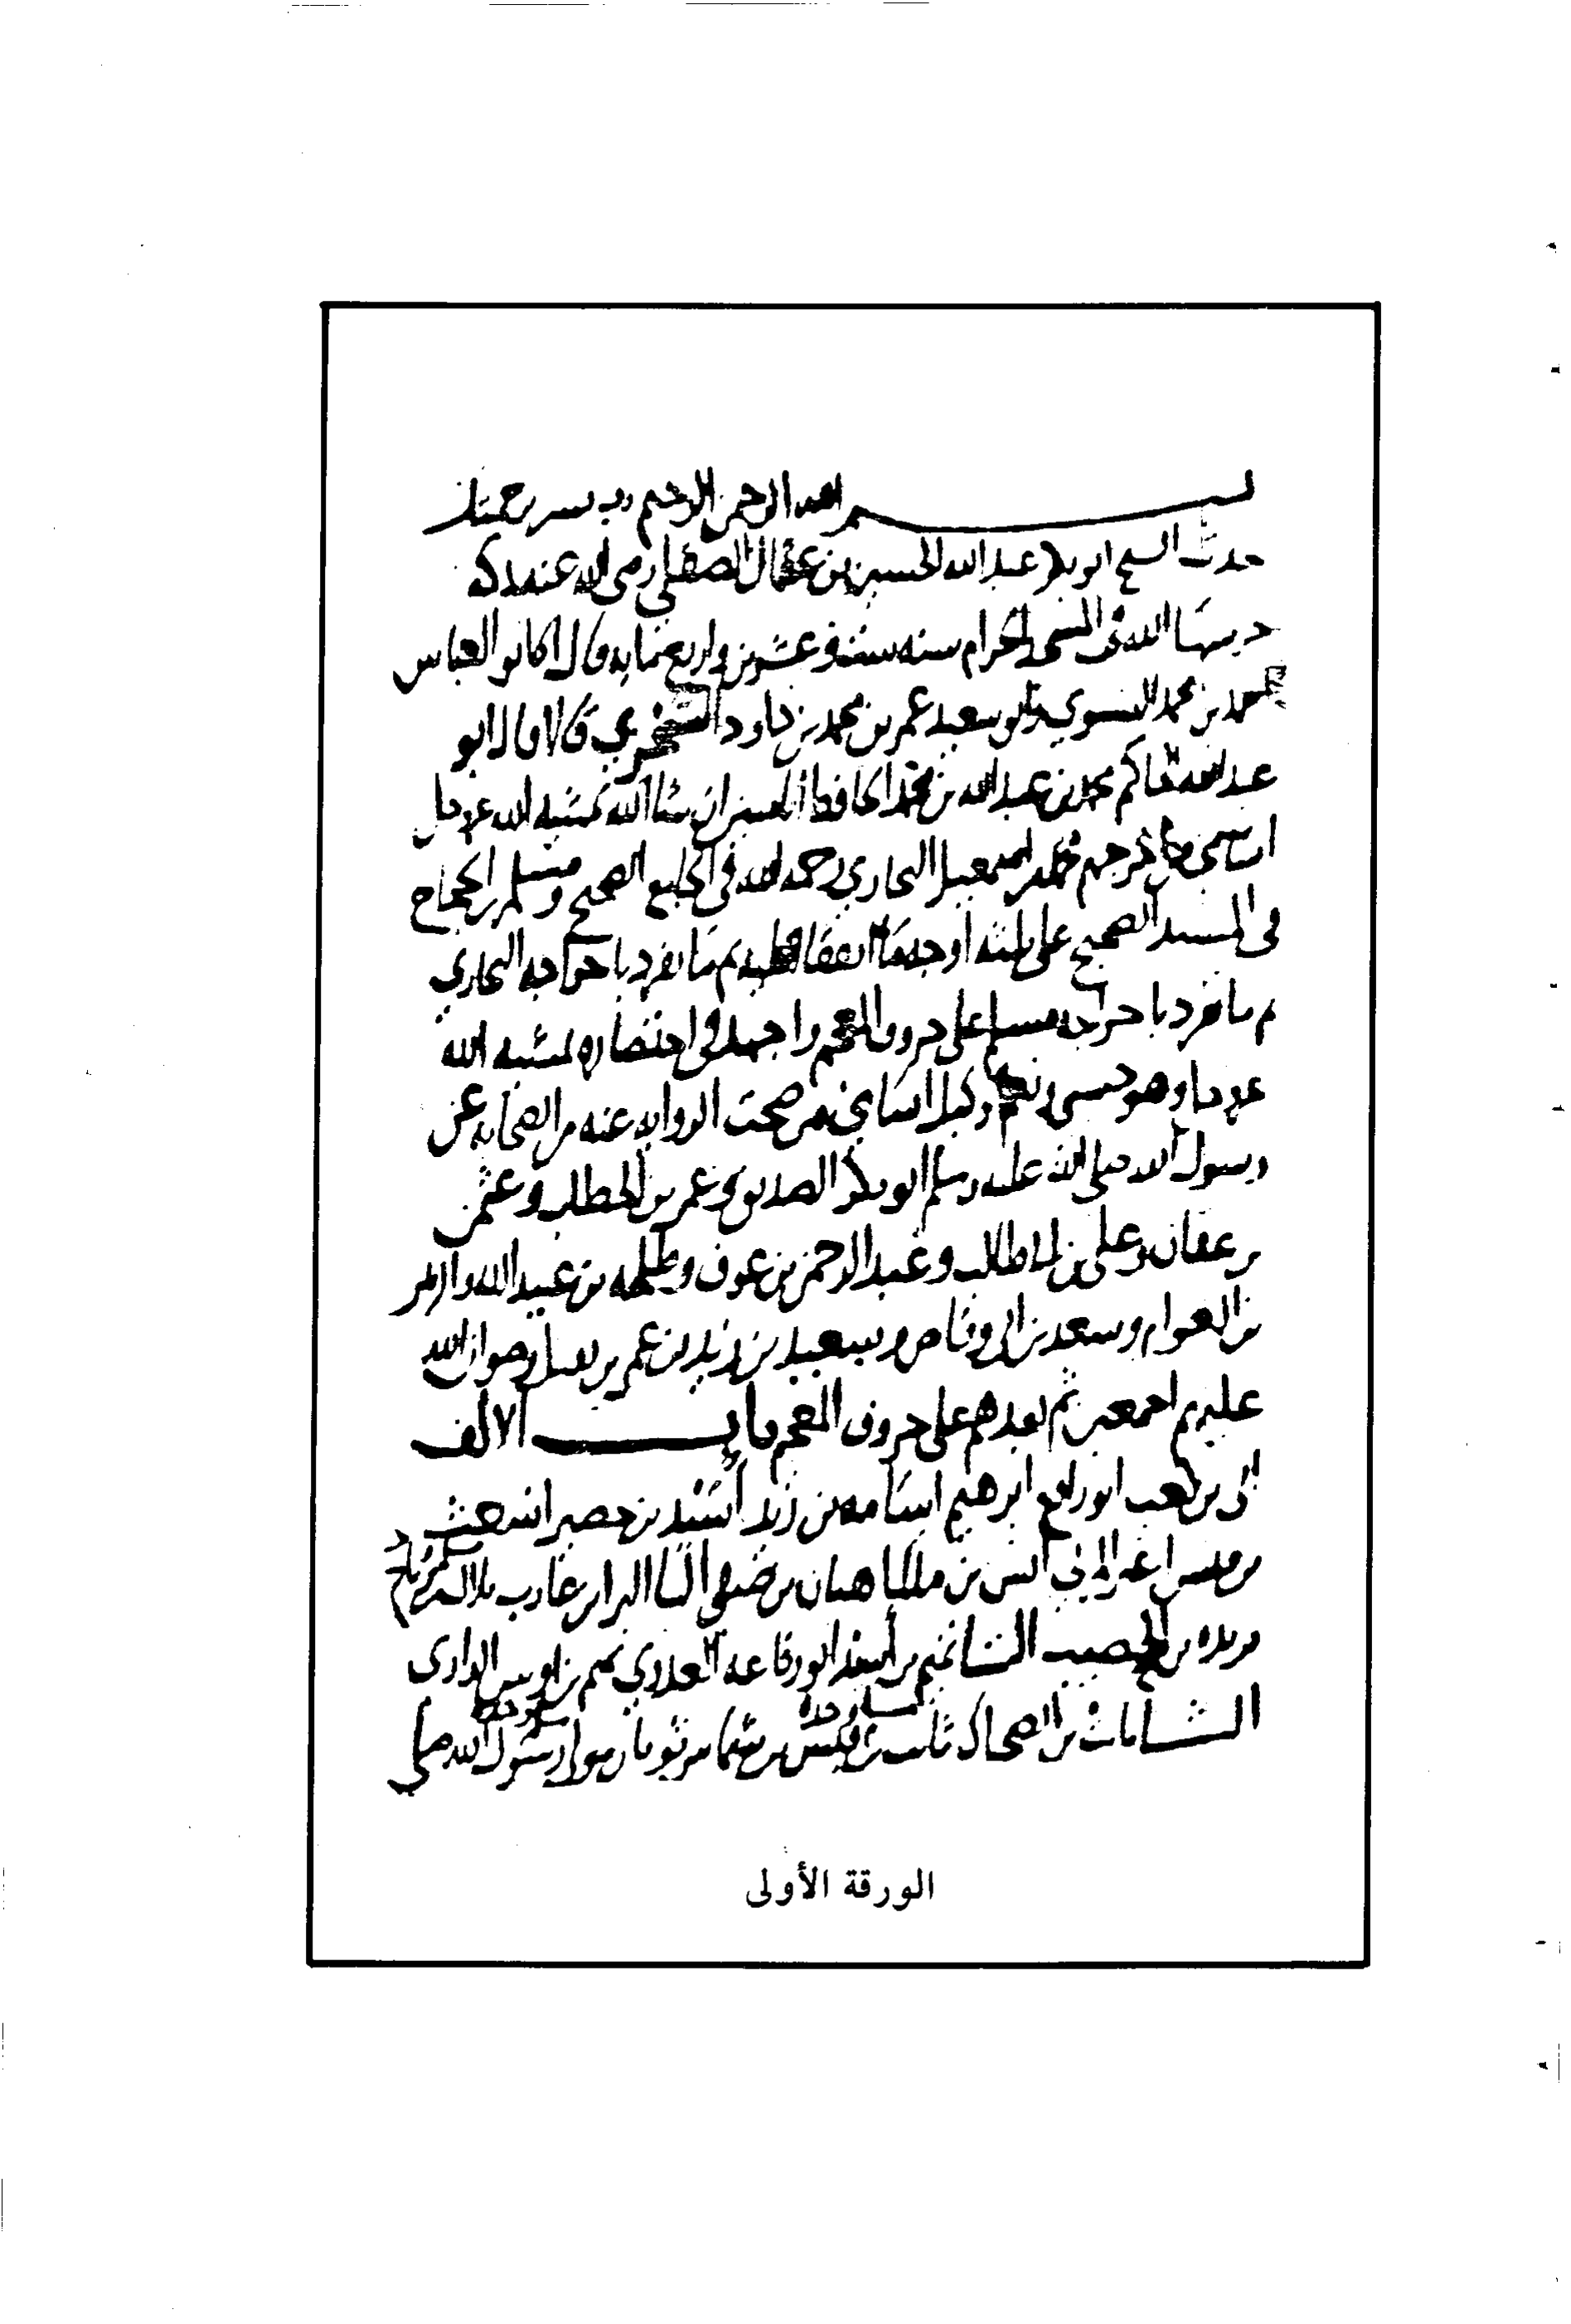 بسم الله الرحمن الرحيم رب يسر برحمتك
حدثنا الشيخ ابو عبد الله الحسين بن الصقلي رضي الله عنه بمكة
حرسها الله في المسجد الحرام سنة ست وعشرين واربع مايه قال انا ابو العباس
احمد بن محمد النسوي وابو سعيد عمر بن محمد بن داود السجزي قالا قال ابو
عبد الله الحاكم محمد بن عبد الله بن محمد الحافظ ان شا الله بمشيه الله
اسامي من اخرجهم محمد بن اسمعيل البخاري رحمه الله في الجامع الصحيح ومسلم بن الحجاج
في المسند الصحيح على ثلثه اوجه ما اتفقا عليه ثم ما تفرد باخراجه البخاري
ثم ما تفرد باخراجه مسلم على حروف المعجم واجهد في اختصاره بمشيه الله
وهو حسبي ونعم الوكيل اسامي من صحت الروايه عنه من الصحابه عن
رسول الله صلى الله عليه وسلم ابو بكر الصديق وعمر بن الخطاب وعثمن
بن عفان وعلي بن ابي طالب وعبد الرحمن بن عوف وطلحه بن عبيد الله والزبير
بن العوام وسعد بن ابي وقاص وسعيد بن زيد بن عمرو بن نفيل رضوان الله
عليهم اجمعين ثم بعدهم على حروف المعجم باب الالف
ابي بن كعب ابو رافع ابرهيم اسامه بن زيد اسيد بن حضير اشعث
بن قيس اغر المزني انس بن ملك اهبان بن صيفي البا البرا بن عازب بلال بن رباح
بريده بن الحصيب التا تميم بن أسيد ابو رفاعه العدوي تميم بن اوس الداري
الثا من الصحابه ثابت بن قيس بن شماس ثوبان مولى رسول الله صلى
الورقة الأولى